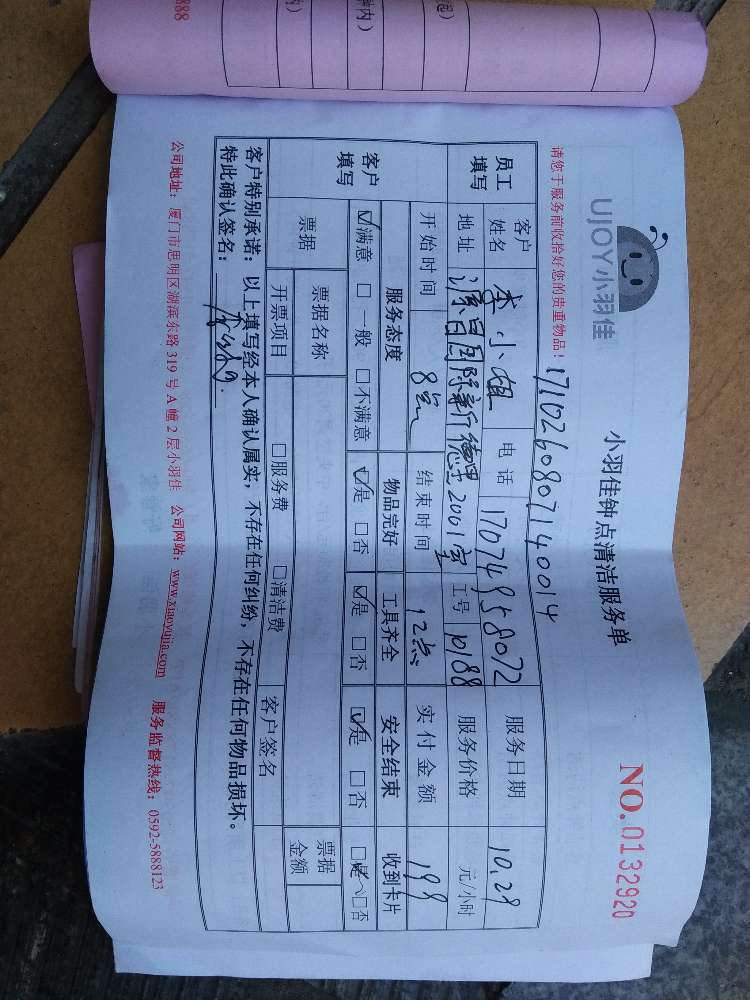 888
内)
种内)
起)
UJOY小羽佳
小羽佳钟点清洁服务单
NO.0132920
请您于服务前收拾好您的贵重物品！
1710260807140014
员工填写
客户姓名
李小姐
电话
17074958072
服务日期
10.29
地址
源昌国际新德里2001室
工号
P188
服务价格
元/小时
开始时间
8点
结束时间
12点
实付金额
199
客户填写
服务态度
物品完好
工具齐全
安全结束
收到卡片
☑满意 □一般 □不满意
☑是 □否
☑是 □否
☑是 □否
□是 □否
票据
票据名称
客户签名
票据金额
开票项目
□服务费
□清洁费
客户特别承诺：以上填写经本人确认属实，不存在任何纠纷，不存在任何物品损坏。
特此确认签名：
公司地址：厦门市思明区湖滨东路 319 号 A 幢 2 层小羽佳 公司网站：www.xiaoyujia.com 服务监督热线：0592-5888123